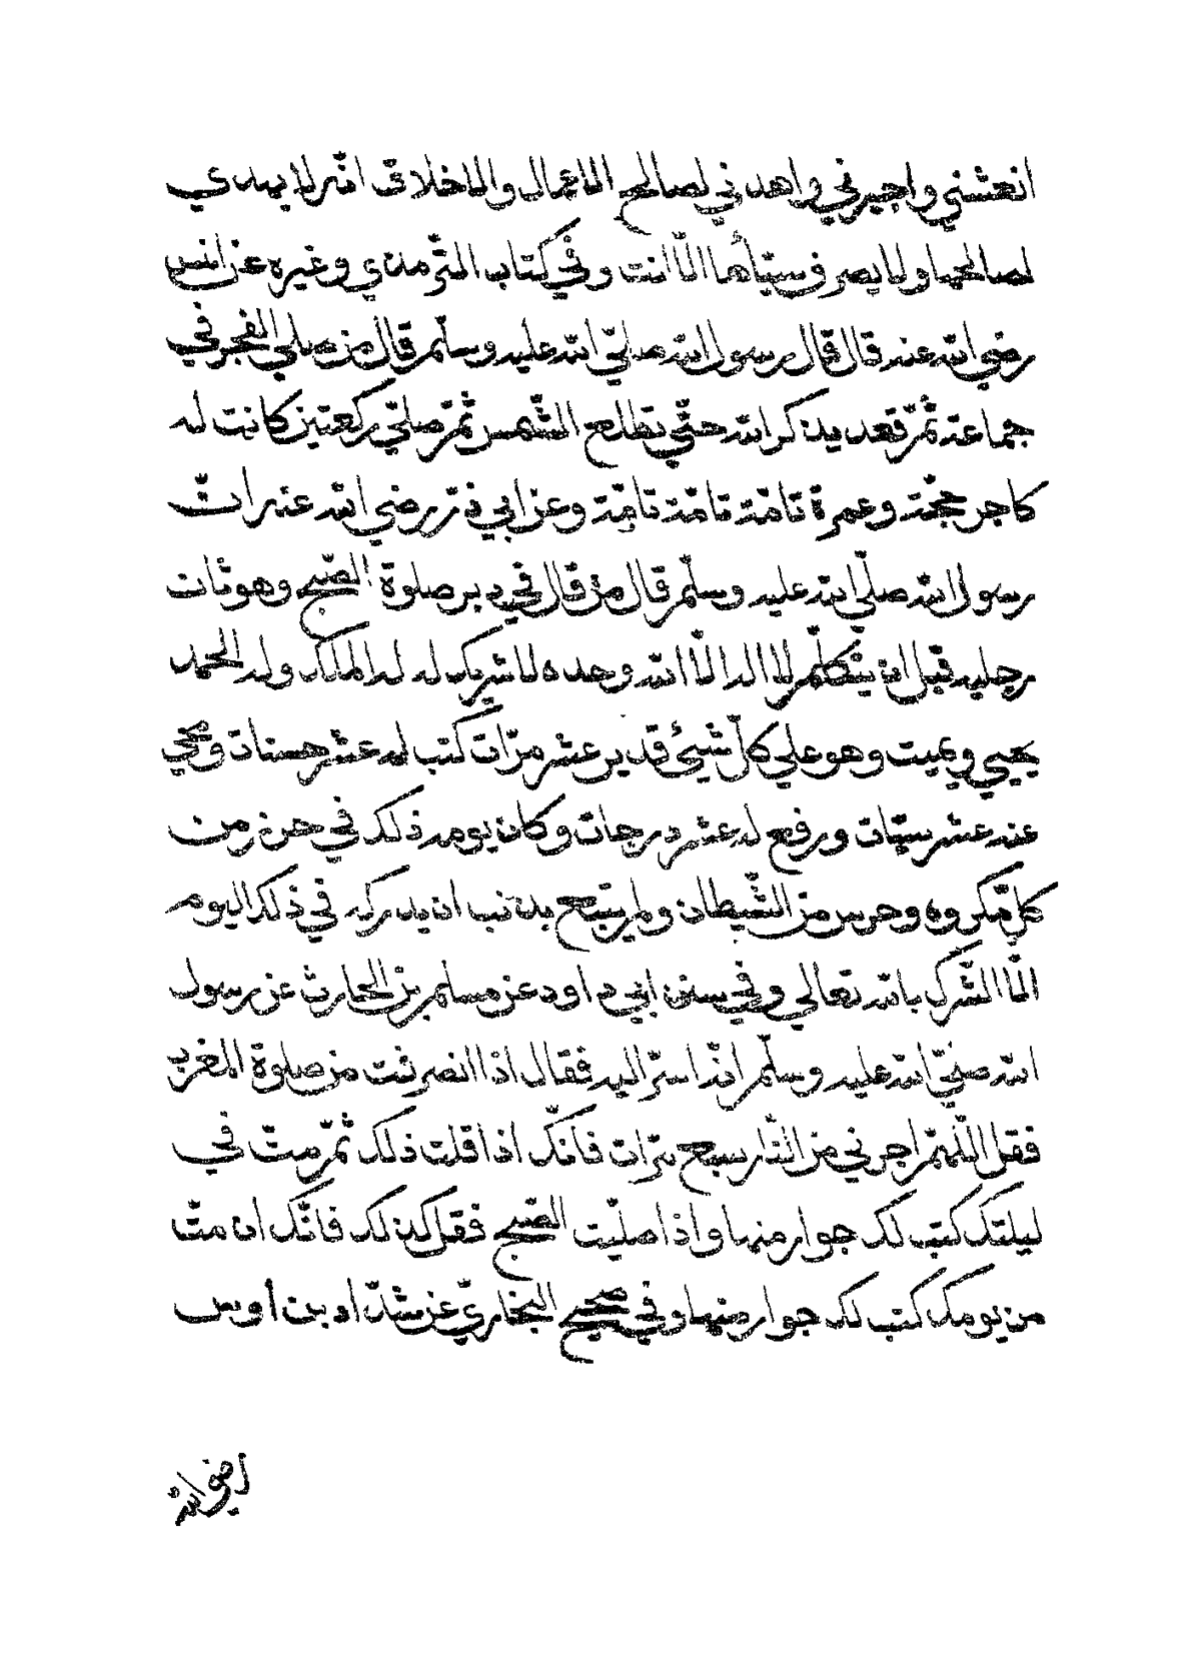 انعشني واجبرني واهدني لصالح الاعمال والاخلاق انّه لا يهدي
لصالحها ولا يصرف سيّأها الّا انت وفي كتاب التّرمذي وغيره عن انس
رضي الله عنه قال قال رسول الله صلّي الله عليه وسلّم قال من صلي الفجر في
جماعة ثمّ قعد يذكر الله حتّي تطلع الشّمس ثمّ صلّي ركعتين كانت له
كاجر حجّة وعمرة تامّة تامّة تامّة وعن ابي ذرّ رضي الله عنه انّ
رسول الله صلّي الله عليه وسلّم قال من قال في دبر صلوة الصّبح وهو ثان
رجليه قبل ان يتكلّم لا اله الّا الله وحده لا شريك له له الملك وله الحمد
يحيي ويميت وهو علي كلّ شيئ قدير عشر مرّات كتب له عشر حسنات ومحي
عنه عشر سيّات ورفع له عشر درجات وكان يومه ذلك في حرز من
كلّ مكروه وحرس من الشّيطان ولم يتبع بذنب ان يدركه في ذلك اليوم
الّا الشّرك بالله تعالي وفي سنن ابي داود عن مسلم بن الحارث عن رسول
الله صلّي الله عليه وسلّم انّه اسرّ اليه فقال اذا انصرفت من صلوة المغرب
فقل اللّهمّ اجرني من النّار سبع مرّات فانّك اذا قلت ذلك ثمّ متّ في
ليلتك كتب لك جوار منها واذا صلّيت الصّبح فقل كذلك فانّك ان متّ
من يومك كتب لك جوار منها وفي صحيح البخاريّ عن شدّاد بن أوس
رضي الله